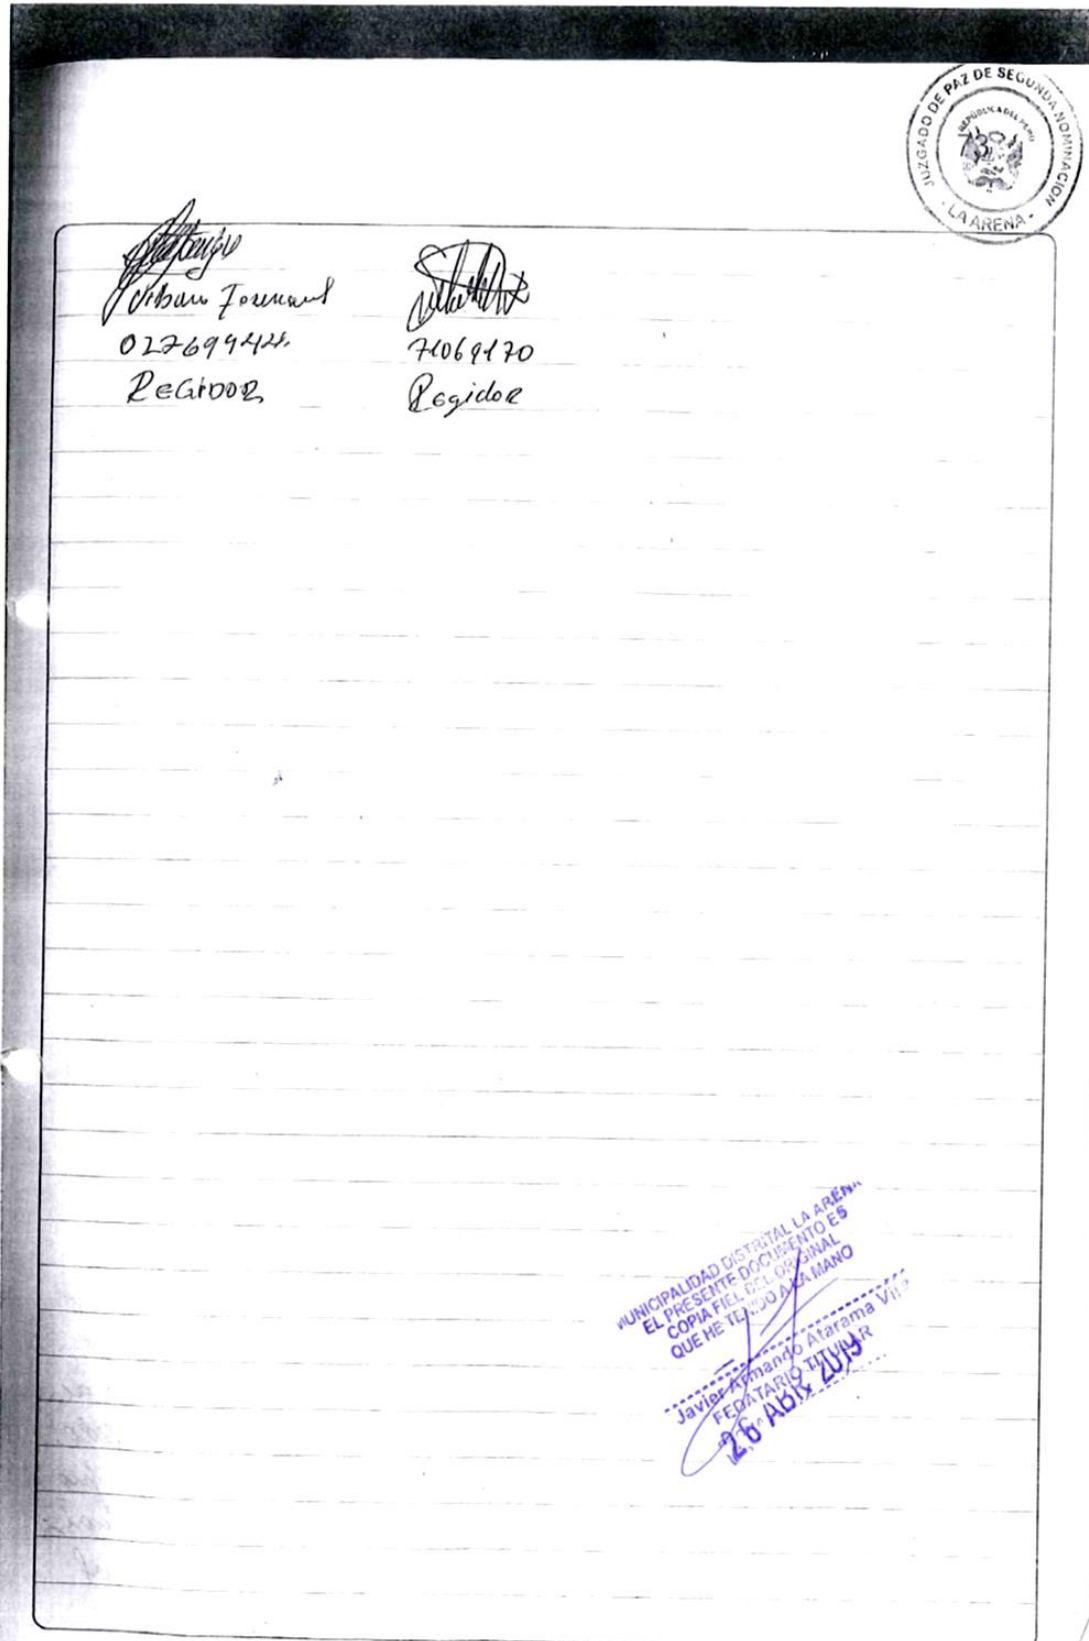 JUZGADO DE PAZ DE SEGUNDA NOMINACION
REPÚBLICA DEL PERÚ
73
- LA ARENA -
71069170
REGIDOR
Regidor
MUNICIPALIDAD DISTRITAL LA ARENA
EL PRESENTE DOCUMENTO ES
COPIA FIEL DEL ORIGINAL
QUE HE TENIDO A LA MANO
Javier Armando Atarama
FEDATARIO TITULAR
26 ABR. 2019